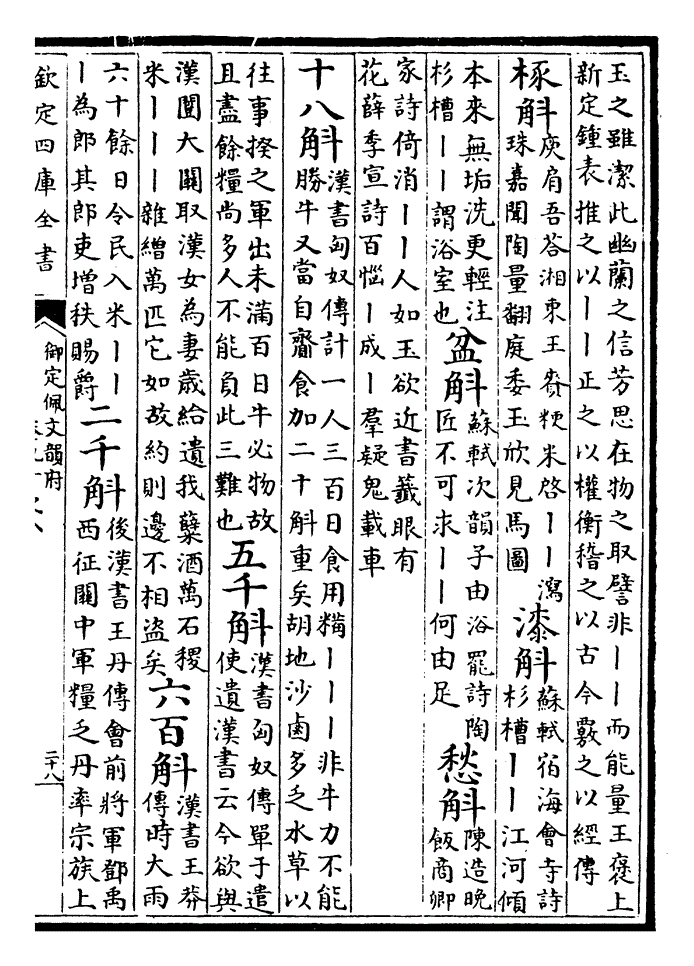 玉之雖潔此幽蘭之信芳思在物之取譬非丨丨而能量王褒上
新定鍾表推之以丨丨正之以權衡稽之以古今覈之以經傳
椓斛
庾肩吾荅湘東王賚粳米啓丨丨瀉
珠嘉聞陶量翻庭委玉欣見馬圖
漆斛
蘇軾宿海會寺詩
杉槽丨丨江河傾
本來無垢洗更輕注
杉槽丨丨謂浴室也
盆斛
蘇軾次韻子由浴罷詩陶
匠不可求丨丨何由足
愁斛
陳造晚
飯商卿
家詩倚消丨丨人如玉欲近書籤眼有
花薛季宣詩百惱丨成丨羣疑鬼載車
十八斛
漢書匈奴傳計一人三百日食用糒丨丨丨非牛力不能
勝牛又當自齎食加二十斛重矣胡地沙鹵多乏水草以
往事揆之軍出未滿百日牛必物故
且盡餘糧尚多人不能負此三難也
五千斛
漢書匈奴傳單于遣
使遺漢書云今欲與
漢闓大關取漢女為妻歲給遺我糵酒萬石稷
米丨丨丨雜繒萬匹它如故約則邊不相盜矣
六百斛
漢書王莽
傳時大雨
六十餘日令民入米丨丨
丨為郎其郎吏增秩賜爵
二千斛
後漢書王丹傳會前將軍鄧禹
西征關中軍糧乏丹率宗族上
欽定四庫全書
御定佩文韻府
二十八